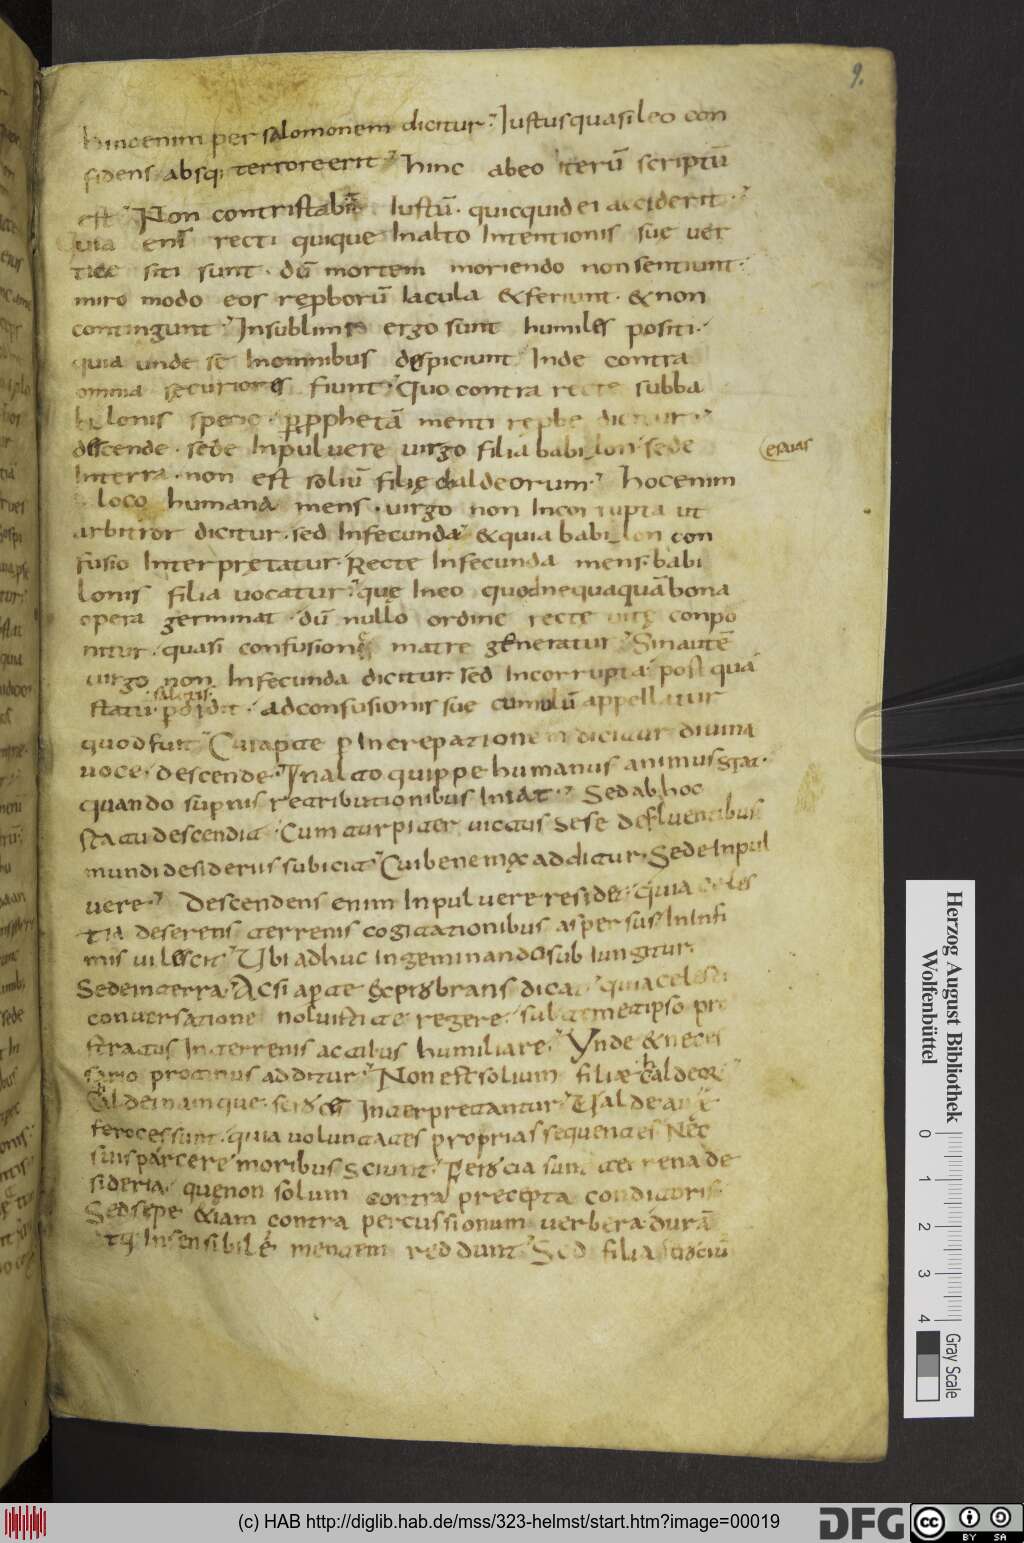 9.
hincenim per salomonem dicitur. Iustus quasi leo con
fidens absq; terrore erit. hinc abeo iterū scriptū
est. Non contristabit Iustū. quicquid ei acciderit.
uia eni recti quique Inalto Intentionis sue uer
tice siti sunt. dū mortem moriendo non sentiunt.
miro modo eos reproborū Iacula & feriunt. & non
contingunt. Insublimis ergo sunt humiles positi.
quia unde sē Inomnibus despiciunt Inde contra
omnia securiores fiunt. Quo contra recte subba
bilonis specie. prophetā menti reprobe dicitur.
descende. sede Inpuluere uirgo filia babilon. sede
esaias
Interra. non est soliū filie chaldeorum. hocenim
loco humana mens. uirgo non Incorrupta ut
arbitror dicitur. sed Infecunda & quia babilon con
fusio Interpretatur. Recte Infecunda mens. babi
lonis filia uocatur. que Ineo quod nequaquā bona
opera germinat. dū nullo ordine recte uite conpo
nitur. quasi confusione matre generatur. Sinautē
uirgo non Infecunda dicitur sed Incorrupta. post quā
statū salutis pdidit. ad confusionis sue cumulū appellatur
quod fuit. Cui apte p Increpationem dicitur diuina
uoce. descende. Inalto quippe humanus animus stat.
quando supnis retributionibus Iniat. Sed ab hoc
statu descendit. Cum turpiter uictus sese defluentibus
mundi desideriis subicit. Cui bene mox additur. Sede Inpul
uere. Descendens enim Inpuluere reside. quia celes
tia deserens terrenis cogitationibus aspersus. Ininfi
mis uilescit. Ubi adhuc Ingeminando subiungitur.
Sede interra. Acsi apte exprobrans dicat. quia celesti
conuersatione noluisti te regere. sub temetipso pro
stratus Interrenis actibus humiliare. Unde & neces
sario protinus additur. Non est solium filie chaldeor
Chaldei namque. feroces Interpretantur. Ualde aūt
feroces sunt. quia uoluntates proprias sequentes Nec
suis parcere moribus sciunt. Ferocia sunt terrena de
sideria. que non solum contra precepta conditoris.
Sed sepe & iam contra percussionum uerbera. durā
atq; Insensibilē mentem reddunt. Sed filia ferociū
Herzog August Bibliothek
Wolfenbüttel
0 1 2 3 4
Gray Scale
(c) HAB http://diglib.hab.de/mss/323-helmst/start.htm?image=00019
DFG
CC BY SA